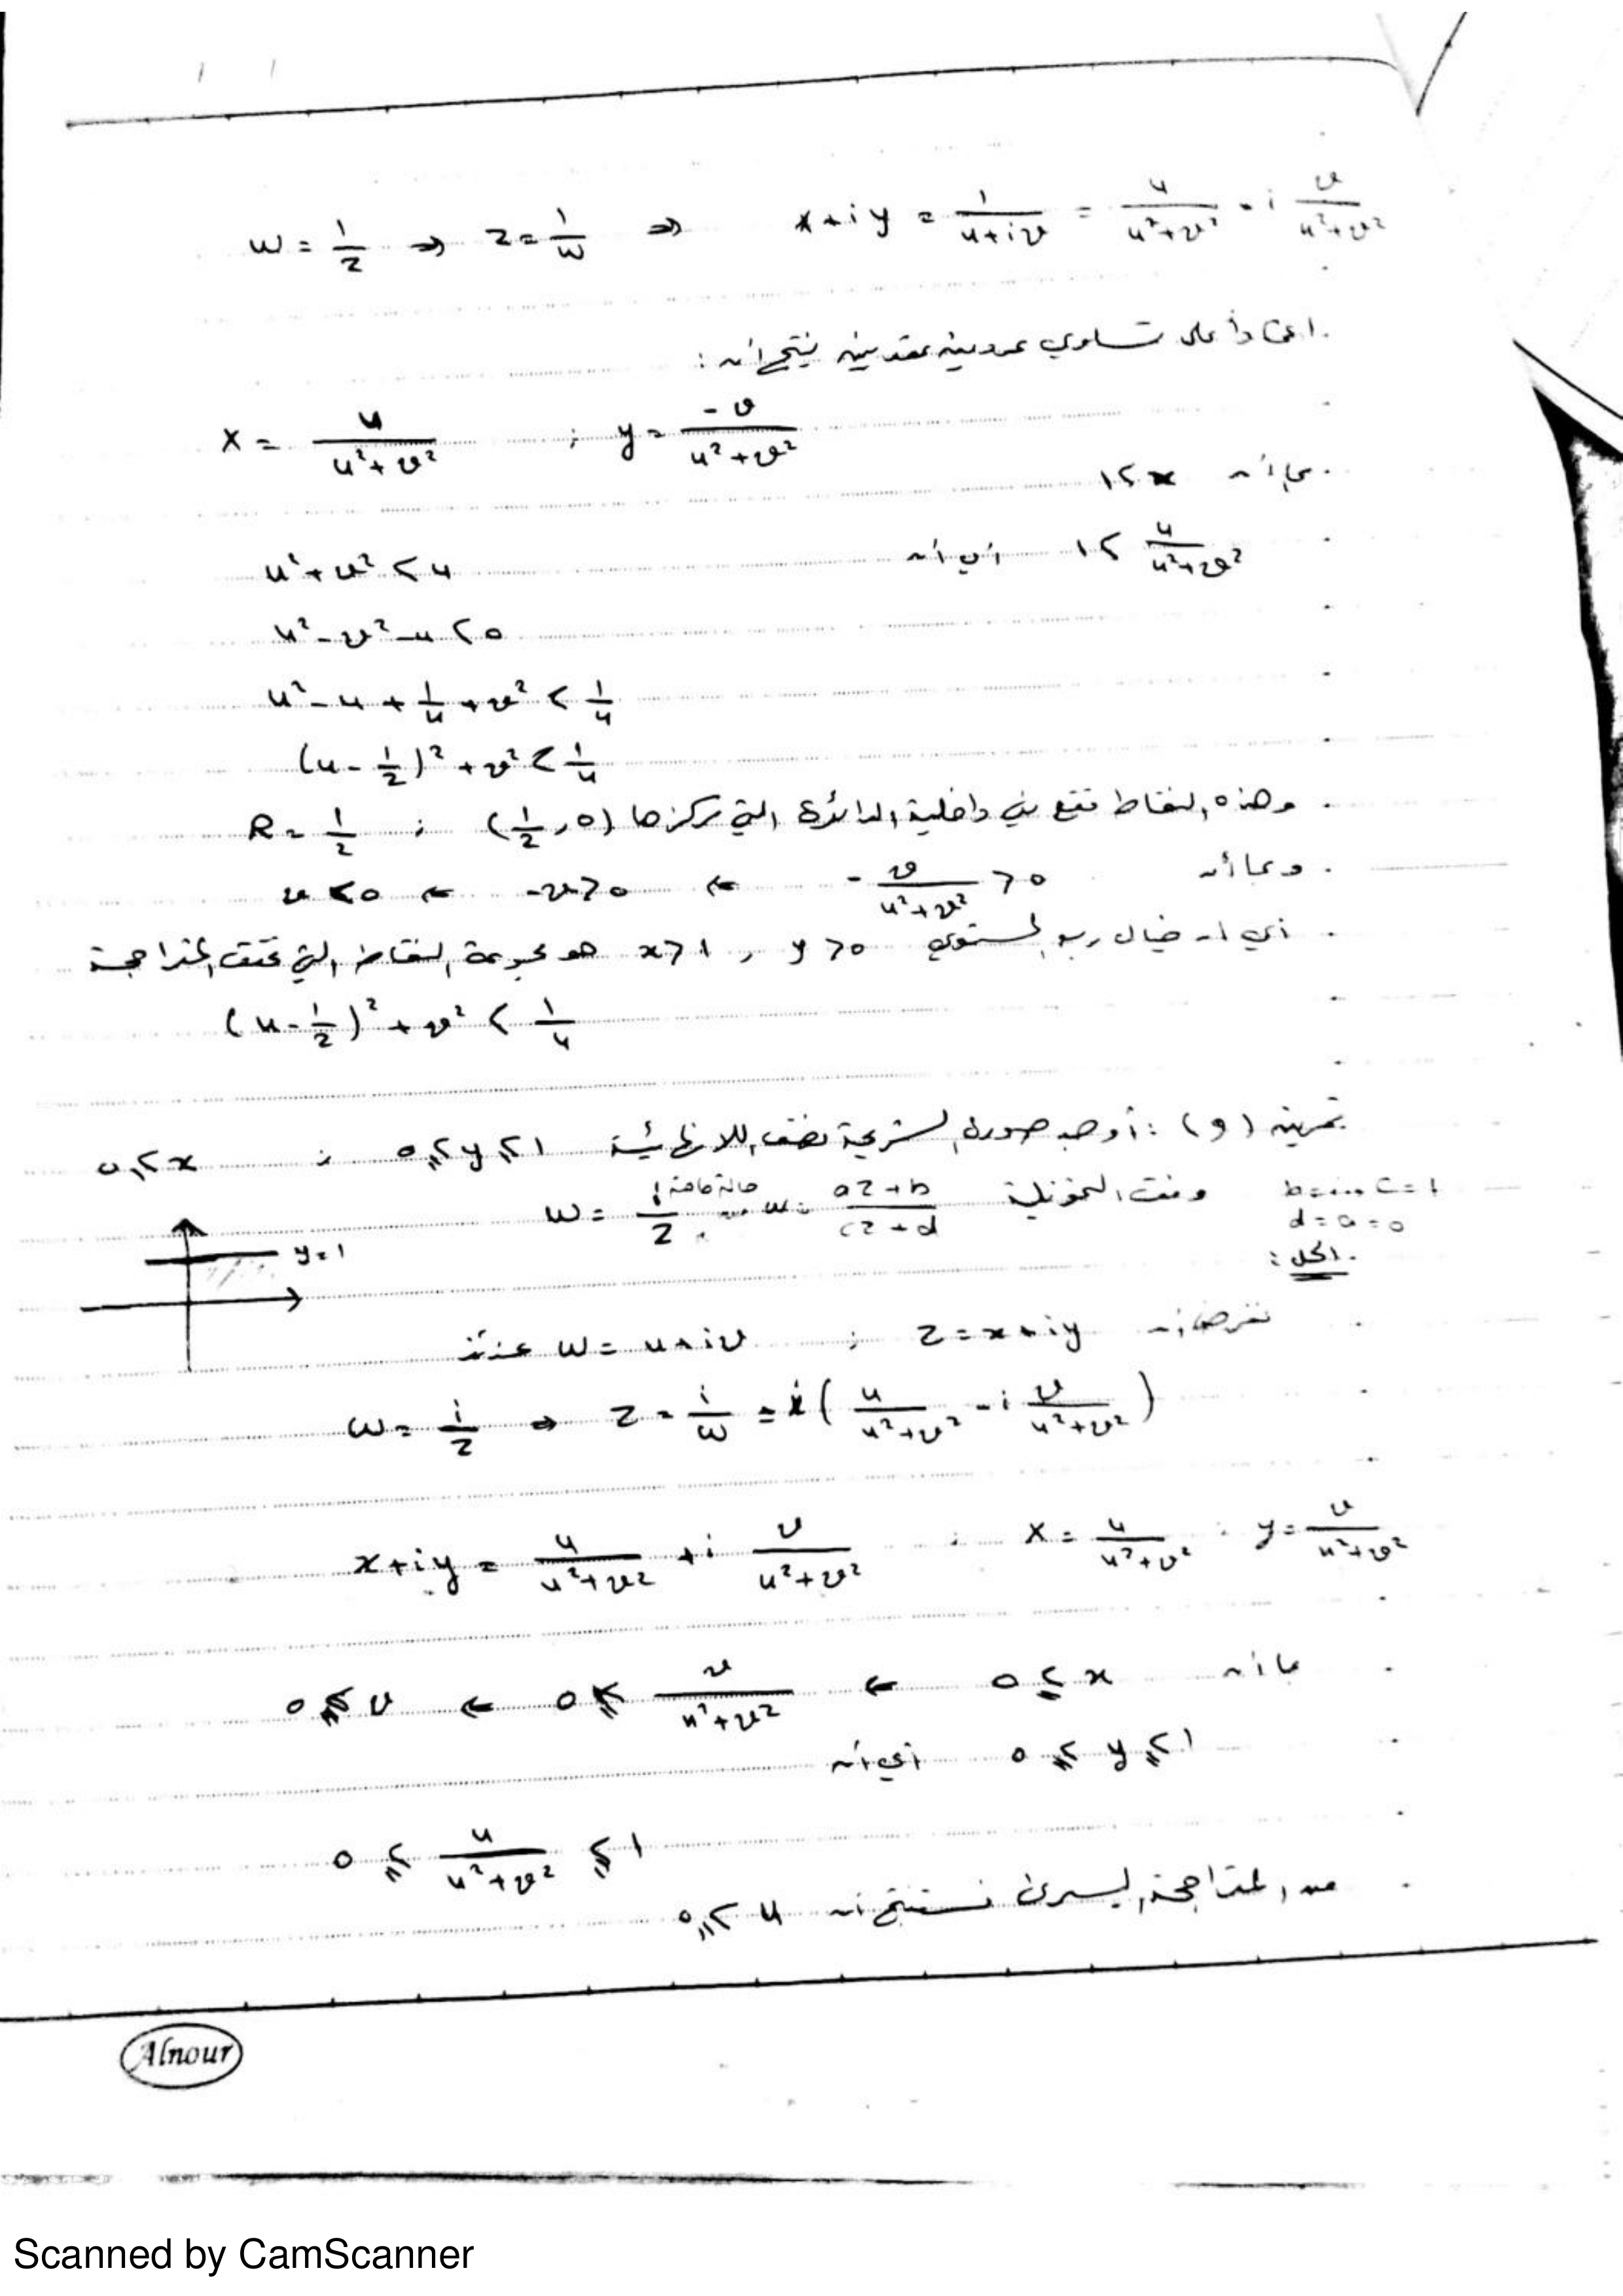 w = 1/z ⇒ z = 1/w ⇒ x+iy = 1/(u+iv) = u/(u²+v²) - i v/(u²+v²)
اعتماداً على تساوي عددين عقديين ينتج أن :
x = u/(u²+v²) ; y = -v/(u²+v²)
بما أن x > 1
u/(u²+v²) > 1 أي أن u²+v² < u
u²-v²-u < 0
u²-u+1/4+v² < 1/4
(u-1/2)²+v² < 1/4
وهذه النقاط تقع في داخلية الدائرة التي مركزها (1/2, 0) ; R = 1/2
وبما أن -v/(u²+v²) > 0 ← -v > 0 ← v < 0
أي أن خيال ربع المستوي x > 1 , y > 0 هو مجموعة النقاط التي تحقق المتراجحة
(u-1/2)²+v² < 1/4
تمرين (9) : أوجد صورة الشريحة نصف اللانهائية 0 ≤ y ≤ 1 ; 0 ≤ x
وفق التحويلة w = (az+b)/(cz+d) حالة خاصة w = i/z
c=1
d=a=0
y=1
الحل :
نفرض أن z = x+iy ; w = u+iv عندئذ
w = i/z ⇒ z = i/w = i( u/(u²+v²) - i v/(u²+v²) )
x+iy = u/(u²+v²) + i v/(u²+v²) ; x = u/(u²+v²) ; y = v/(u²+v²)
بما أن x ≥ 0 ← v/(u²+v²) ≥ 0 ← v ≥ 0
0 ≤ y ≤ 1 أي أن
0 ≤ u/(u²+v²) ≤ 1
من المتراجحة اليسرى نستنتج أن u ≥ 0
Alnour
Scanned by CamScanner